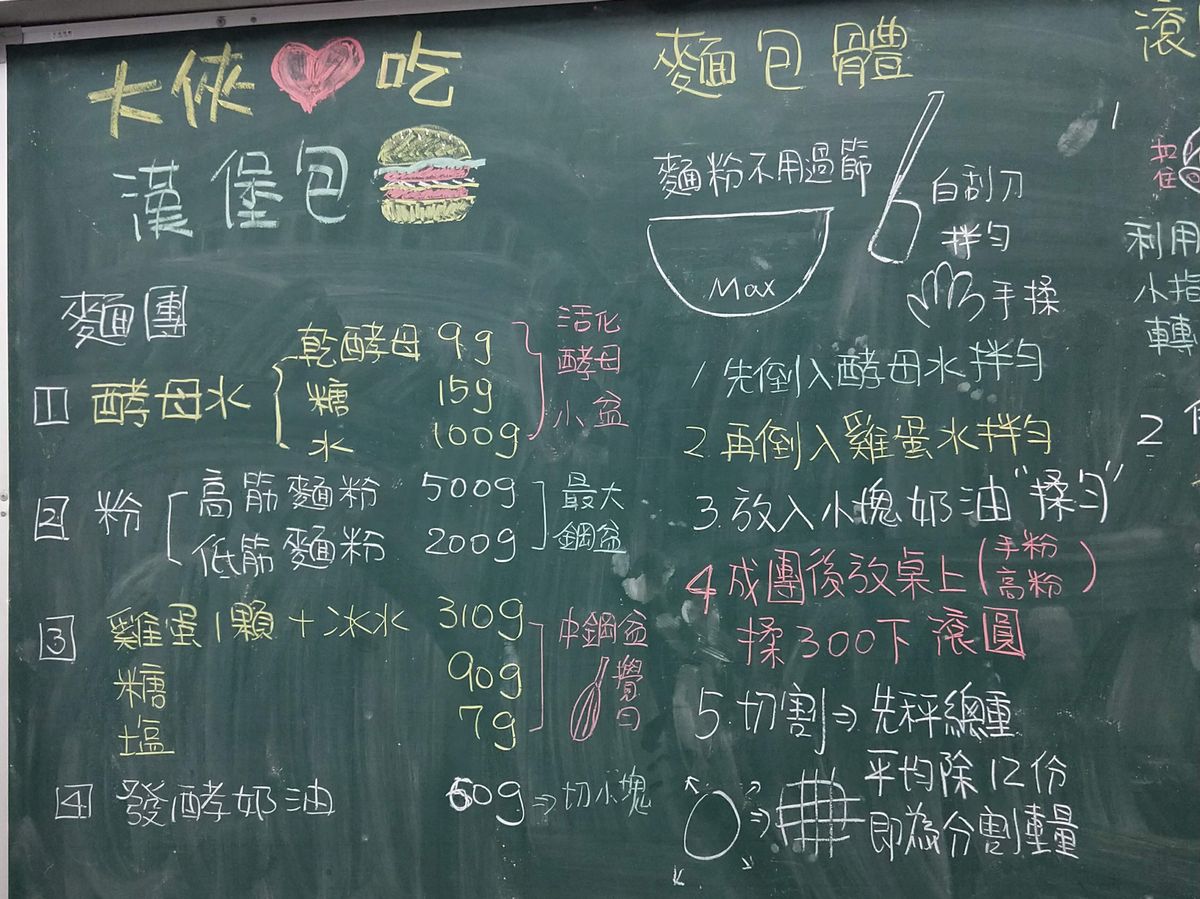 大俠吃
漢堡包
麵團
1 酵母水
乾酵母 9g
糖 15g
水 100g
活化
酵母
小盆
2 粉
高筋麵粉 500g
低筋麵粉 200g
最大
鋼盆
3 雞蛋1顆+冰水 310g
糖 90g
塩 7g
中鋼盆
攪
勻
4 發酵奶油 60g⇒切小塊
麵包體
麵粉不用過節
Max
白刮刀
拌勻
手揉
1 先倒入酵母水拌勻
2.再倒入雞蛋水拌勻
3.放入小塊奶油"揉勻"
4 成團後放桌上(手粉
高粉)
揉300下滾圓
5.切割⇒先秤總重
平均除12份
即為分割重量
滾
1
扣
住
利用
小指
轉
2